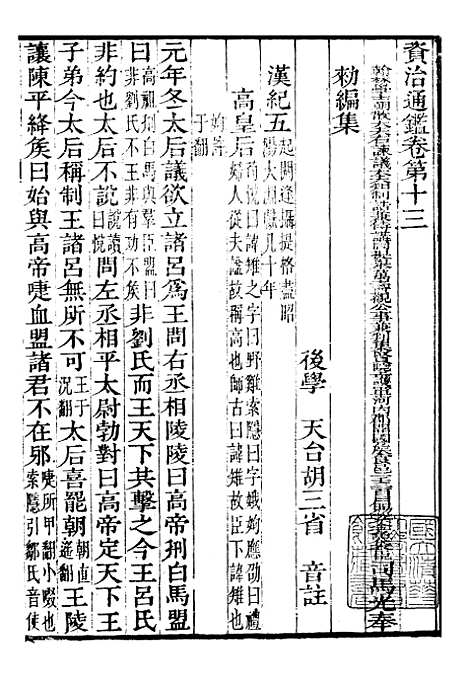 資治通鑑卷第十三
翰林學士朝散大夫右諫議大夫知制誥兼侍講同提舉萬壽觀公事兼判集賢院上護軍河內郡開國侯食邑一千三百戶賜紫金魚袋臣司馬光奉
勑編集
後學 天台胡三省 音註
漢紀五 起閼逢攝提格盡昭陽大淵獻凡十年
高皇后 荀悅曰諱雉之字曰野雞索隱曰字娥姁應劭曰禮婦人從夫諡故稱高也師古曰諱雉故臣下諱雉也姁許于翻
元年冬太后議欲立諸呂爲王問右丞相陵陵曰高帝刑白馬盟
曰 高祖刑白馬與羣臣盟曰非劉氏不王非有功不侯 非劉氏而王天下共擊之今王呂氏
非約也太后不說 說讀曰悅 問左丞相平太尉勃對曰高帝定天下王
子弟今太后稱制王諸呂無所不可 王于況翻 太后喜罷朝 朝直遙翻 王陵
讓陳平絳侯曰始與高帝啑血盟諸君不在邪 啑所甲翻小歠也索隱引鄒氏音使